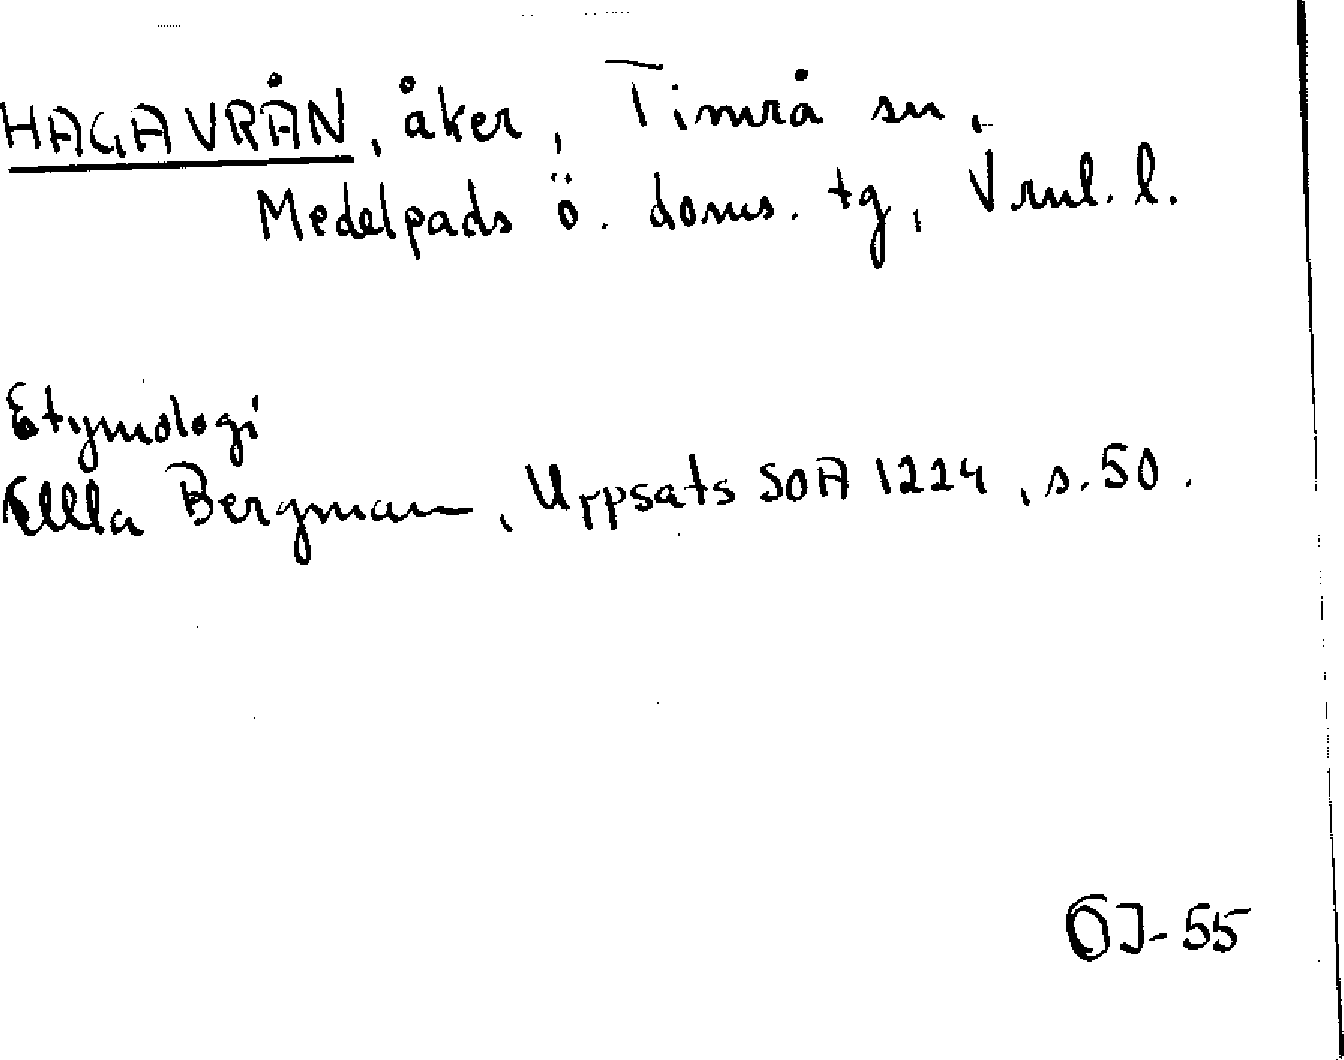 HAGAVRÅN, åker, Timrå sn,
Medelpads ö. doms. tg, Vrnl. l.
Etymologi
Ulla Bergman, Uppsats SOA 1224, s. 50.
OJ-55